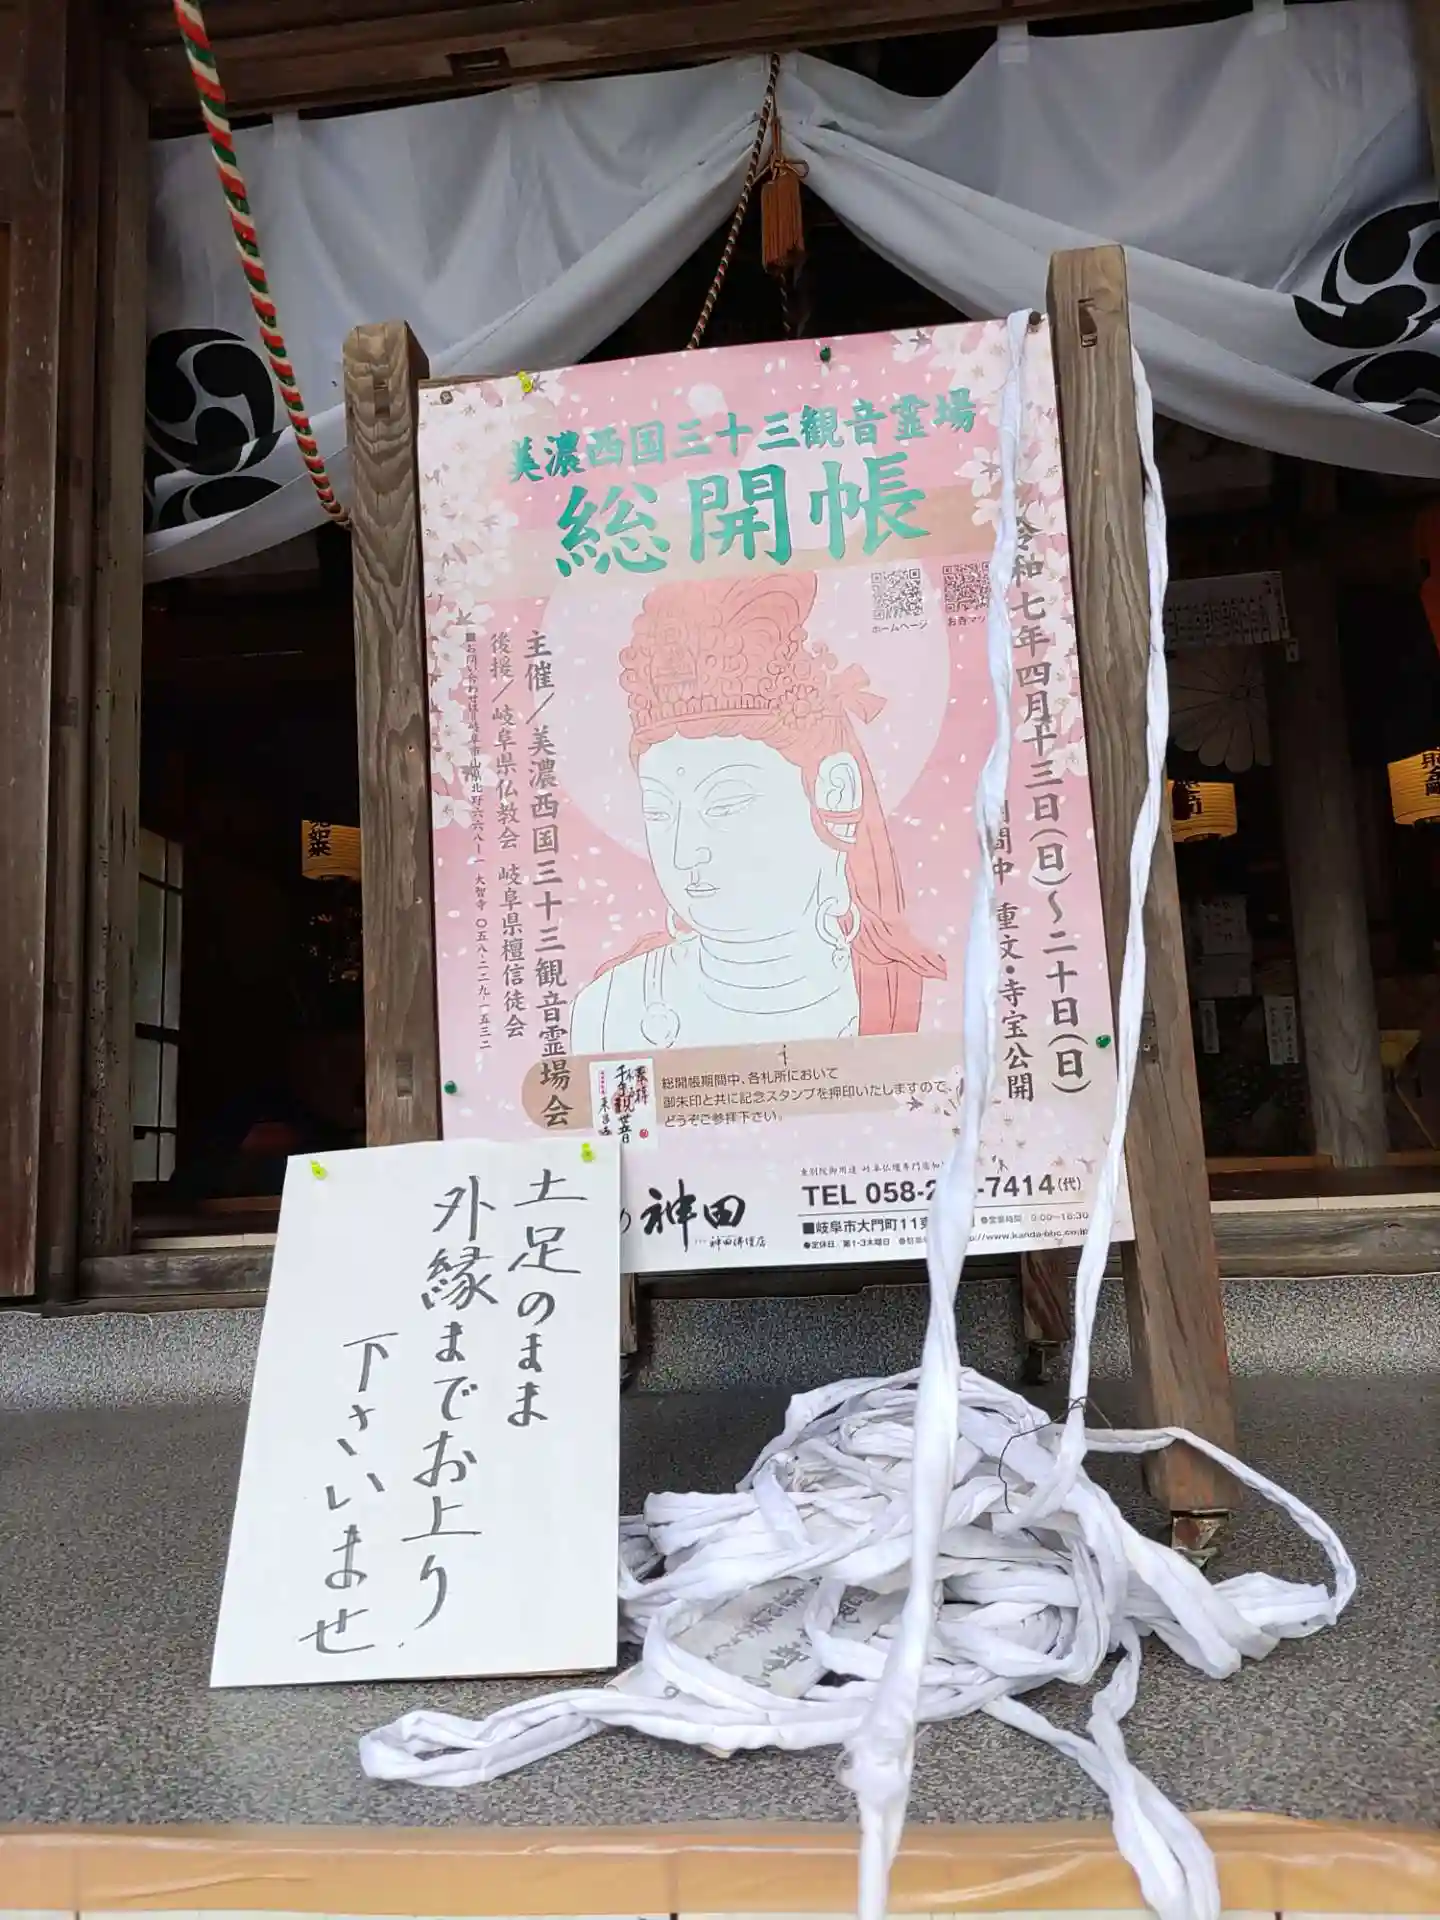 美濃西国三十三観音霊場
総開帳
令和七年四月十三日(日)〜二十日(日)
間中 重文・寺宝公開
ホームページ
お寺マッ
主催/美濃西国三十三観音霊場会
後援/岐阜県仏教会 岐阜県檀信徒会
■お問い合わせは=岐阜市山県北野六六八-一 大智寺 〇五八-二二九-一五三二
総開帳期間中、各札所において
御朱印と共に記念スタンプを押印いたしますので、
どうぞご参拝下さい。
神田
神田佛壇店
TEL 058-2 -7414(代)
■岐阜市大門町11 ●営業時間 9:00〜18:30
●定休日/第1・3木曜日
://www.kanda-bhc.co.jp
土足のまま
外縁までお上り
下さいませ